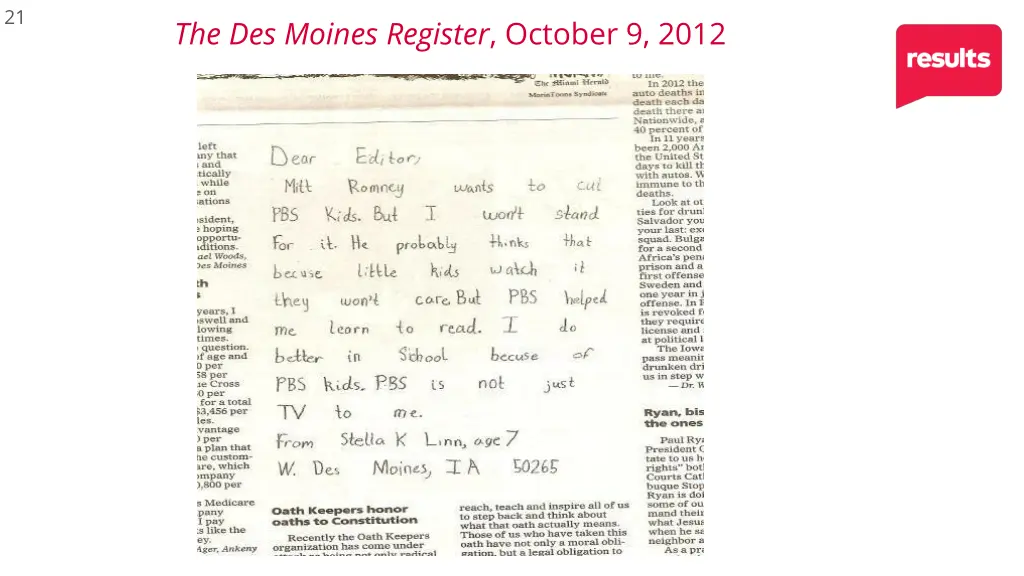 21
The Des Moines Register, October 9, 2012
results
The Miami Herald
MarinToons Syndicate
Dear Editor,
Mitt Romney wants to cut
PBS Kids. But I won't stand
For it. He probably thinks that
becuse little kids watch it
they won't care. But PBS helped
me learn to read. I do
better in School becuse of
PBS kids. PBS is not just
TV to me.
From Stella K Linn, age 7
W. Des Moines, IA 50265
left
any that
and
tically
while
e on
sations
sident,
e hoping
opportu-
ditions.
ael Woods,
Des Moines
th
s
years, I
swell and
lowing
times.
question.
of age and
0 per
58 per
ue Cross
0 per
for a total
$3,456 per
les.
vantage
0 per
a plan that
he custom-
are, which
ompany
0,800 per
s Medicare
pany
I pay
s like the
ey.
Ager, Ankeny
Oath Keepers honor
oaths to Constitution
Recently the Oath Keepers
organization has come under
reach, teach and inspire all of us
to step back and think about
what that oath actually means.
Those of us who have taken this
oath have not only a moral obli-
gation, but a legal obligation to
to me.
In 2012 the
auto deaths in
death each da
death there a
Nationwide, a
40 percent of
In 11 years
been 2,000 A
the United St
days to kill th
with autos. W
immune to th
deaths.
Look at ot
ties for drun
Salvador you
your last: exe
squad. Bulga
for a second
Africa's pena
prison and a
first offense
Sweden and
one year in j
offense. In
is revoked f
they require
license and
at political l
The Iowa
pass meanin
drunken dri
us in step w
— Dr. W
Ryan, bis
the ones
Paul Rya
President O
tate to us h
rights" bot
Courts Cat
buque Stop
Ryan is doi
some of ou
mand their
what Jesus
when he sa
neighbor a
As a pra